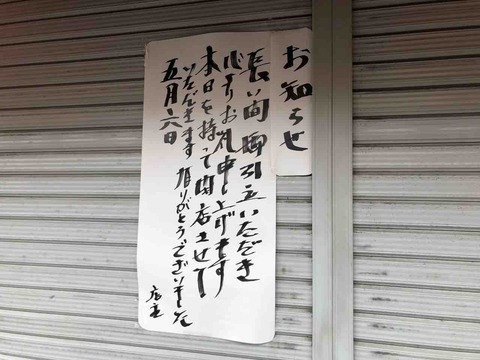 お知らせ
長い間御引立いただき
心よりお礼申し上げます
本日を持って閉店させて
いただきます有りがとうございました
五月六日
店主